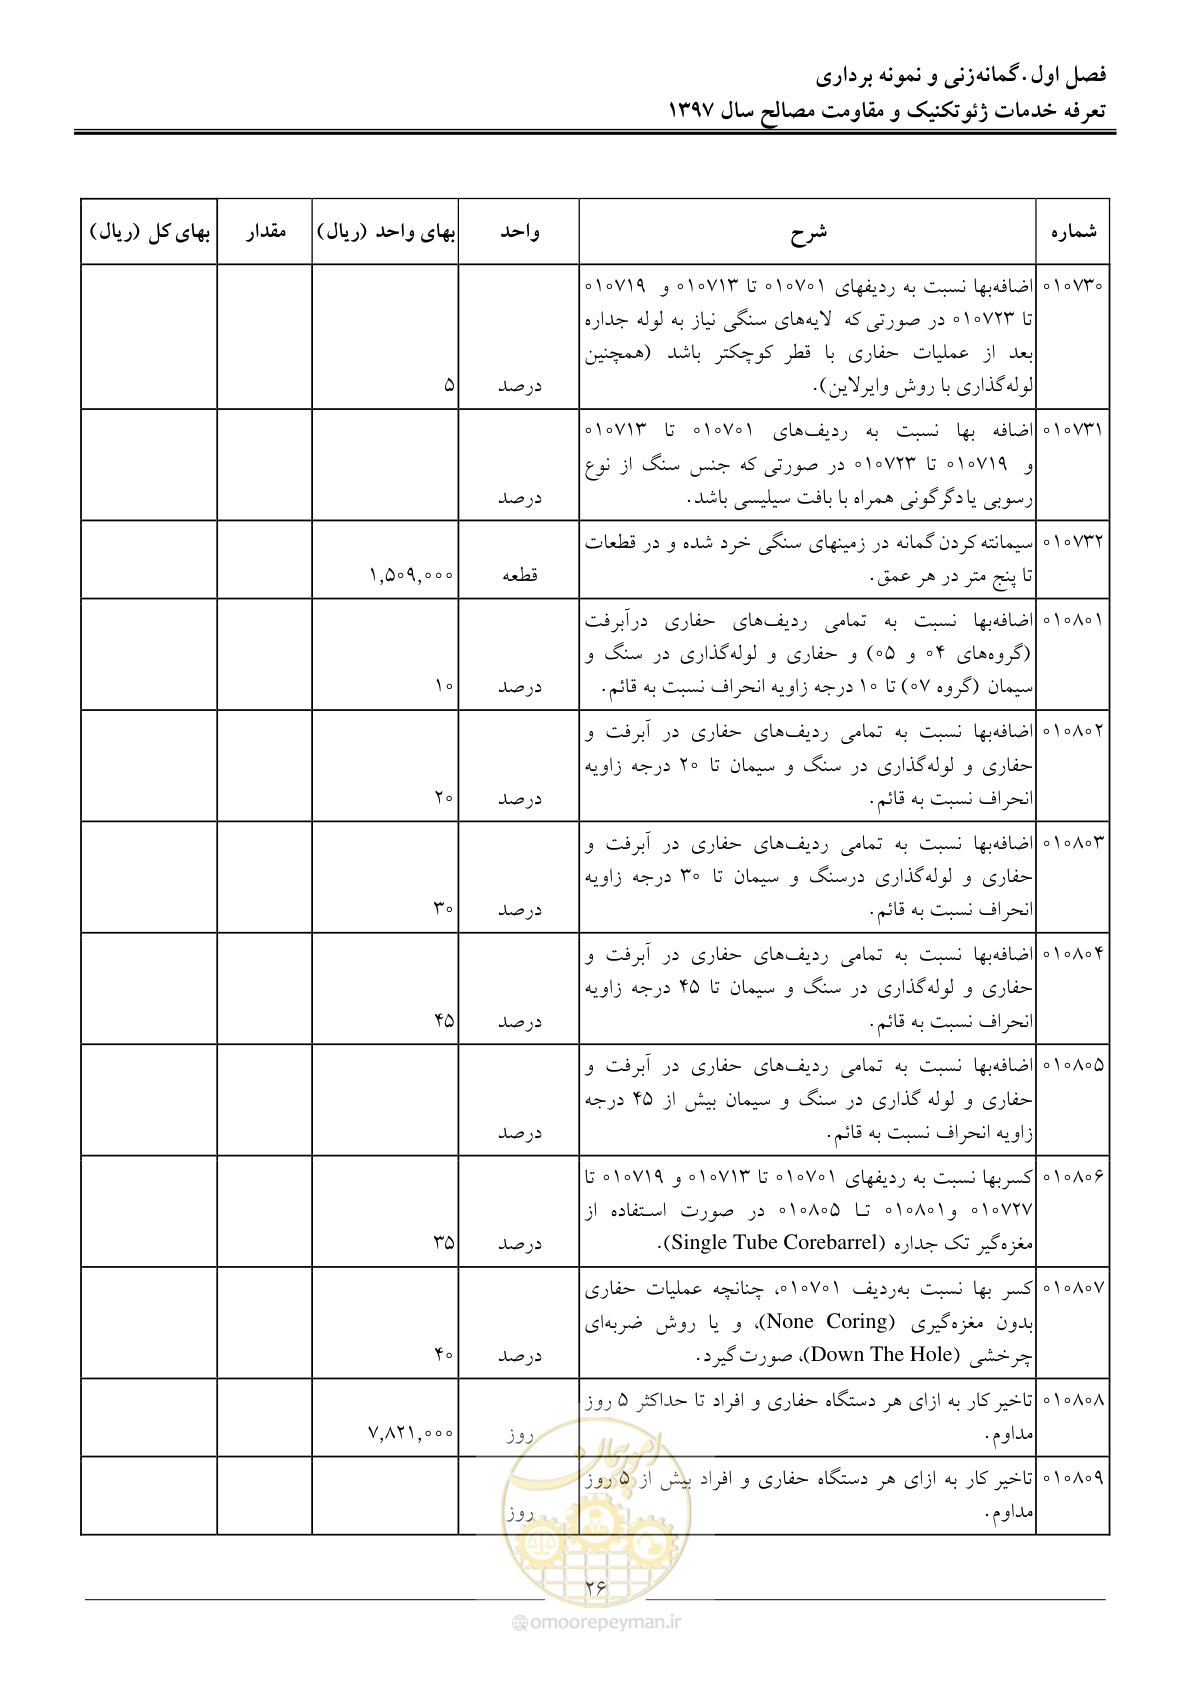 فصل اول.گمانه‌زنی و نمونه برداری
تعرفه خدمات ژئوتکنیک و مقاومت مصالح سال ۱۳۹۷
شماره شرح واحد بهای واحد (ریال) مقدار بهای کل (ریال)
۰۱۰۷۳۰ اضافه‌بها نسبت به ردیفهای ۰۱۰۷۰۱ تا ۰۱۰۷۱۳ و ۰۱۰۷۱۹
تا ۰۱۰۷۲۳ در صورتی که لایه‌های سنگی نیاز به لوله جداره
بعد از عملیات حفاری با قطر کوچکتر باشد (همچنین
لوله‌گذاری با روش وایرلاین). درصد ۵
۰۱۰۷۳۱ اضافه بها نسبت به ردیف‌های ۰۱۰۷۰۱ تا ۰۱۰۷۱۳
و ۰۱۰۷۱۹ تا ۰۱۰۷۲۳ در صورتی که جنس سنگ از نوع
رسوبی یا دگرگونی همراه با بافت سیلیسی باشد. درصد
۰۱۰۷۳۲ سیمانته کردن گمانه در زمینهای سنگی خرد شده و در قطعات
تا پنج متر در هر عمق. قطعه ۱,۵۰۹,۰۰۰
۰۱۰۸۰۱ اضافه‌بها نسبت به تمامی ردیف‌های حفاری درآبرفت
(گروه‌های ۰۴ و ۰۵) و حفاری و لوله‌گذاری در سنگ و
سیمان (گروه ۰۷) تا ۱۰ درجه زاویه انحراف نسبت به قائم. درصد ۱۰
۰۱۰۸۰۲ اضافه‌بها نسبت به تمامی ردیف‌های حفاری در آبرفت و
حفاری و لوله‌گذاری در سنگ و سیمان تا ۲۰ درجه زاویه
انحراف نسبت به قائم. درصد ۲۰
۰۱۰۸۰۳ اضافه‌بها نسبت به تمامی ردیف‌های حفاری در آبرفت و
حفاری و لوله‌گذاری درسنگ و سیمان تا ۳۰ درجه زاویه
انحراف نسبت به قائم. درصد ۳۰
۰۱۰۸۰۴ اضافه‌بها نسبت به تمامی ردیف‌های حفاری در آبرفت و
حفاری و لوله‌گذاری در سنگ و سیمان تا ۴۵ درجه زاویه
انحراف نسبت به قائم. درصد ۴۵
۰۱۰۸۰۵ اضافه‌بها نسبت به تمامی ردیف‌های حفاری در آبرفت و
حفاری و لوله گذاری در سنگ و سیمان بیش از ۴۵ درجه
زاویه انحراف نسبت به قائم. درصد
۰۱۰۸۰۶ کسربها نسبت به ردیفهای ۰۱۰۷۰۱ تا ۰۱۰۷۱۳ و ۰۱۰۷۱۹ تا
۰۱۰۷۲۷ و۰۱۰۸۰۱ تا ۰۱۰۸۰۵ در صورت استفاده از
مغزه‌گیر تک جداره (Single Tube Corebarrel). درصد ۳۵
۰۱۰۸۰۷ کسر بها نسبت به‌ردیف ۰۱۰۷۰۱، چنانچه عملیات حفاری
بدون مغزه‌گیری (None Coring)، و یا روش ضربه‌ای
چرخشی (Down The Hole)، صورت‌گیرد. درصد ۴۰
۰۱۰۸۰۸ تاخیر کار به ازای هر دستگاه حفاری و افراد تا حداکثر ۵ روز
مداوم. روز ۷,۸۲۱,۰۰۰
۰۱۰۸۰۹ تاخیر کار به ازای هر دستگاه حفاری و افراد بیش از ۵ روز
مداوم. روز
امور پیمان
۲۶
omoorepeyman.ir